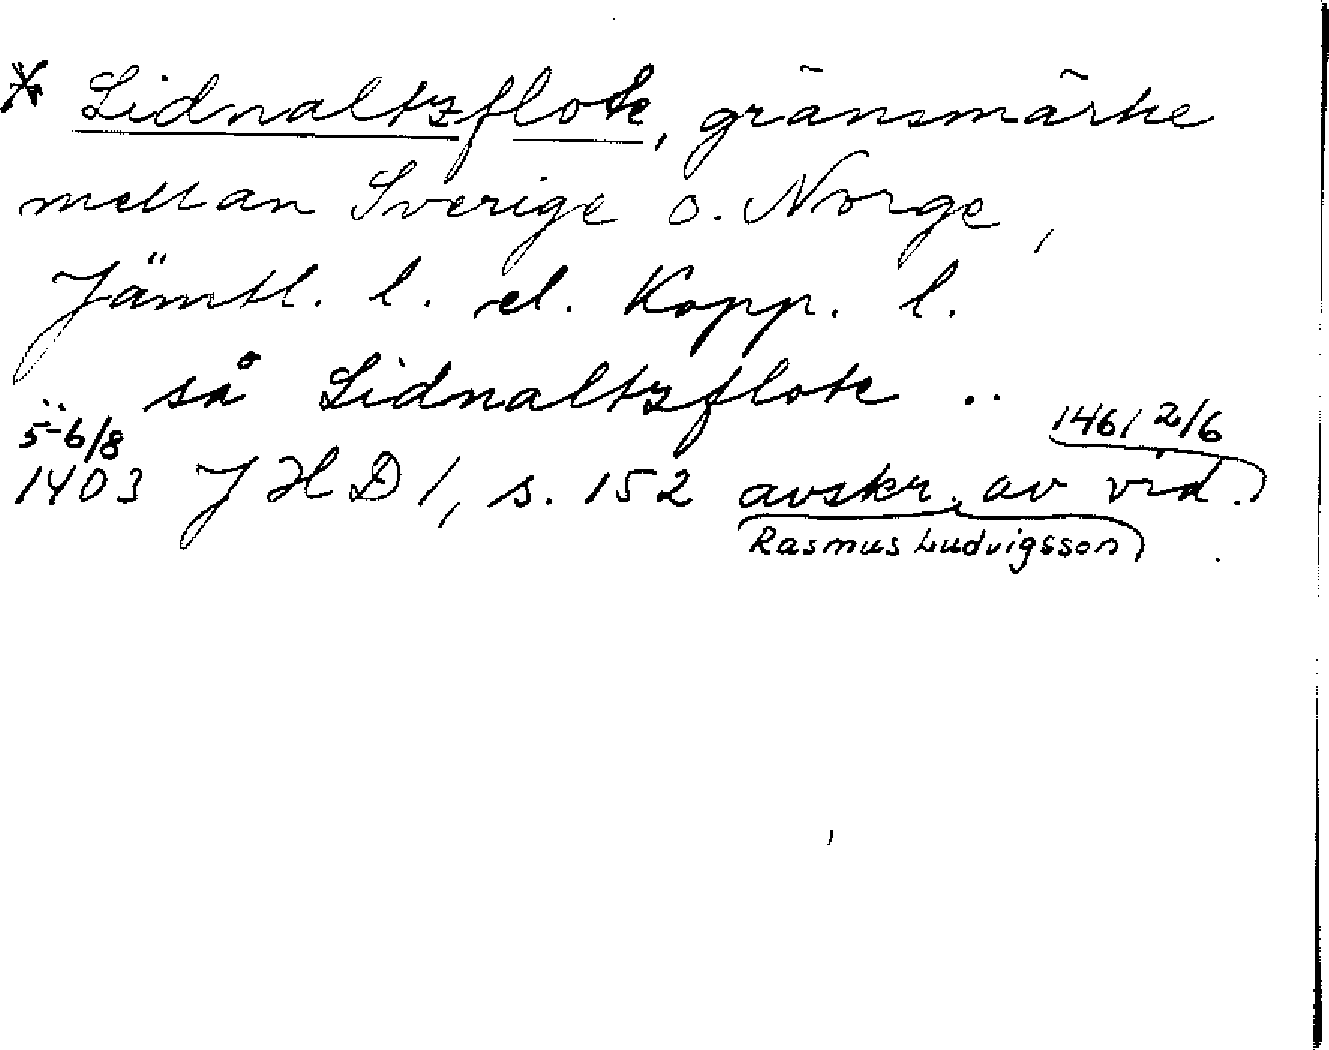 * Lidnaltzflote, gränsmärke
mellan Sverige o. Norge,
Jämtl. l. el. Kopp. l.
.. så Lidnaltzflote ..
5-6/8 1461 2/6
1403 JHD 1, s. 152 avskr. av vid.
Rasmus Ludvigsson